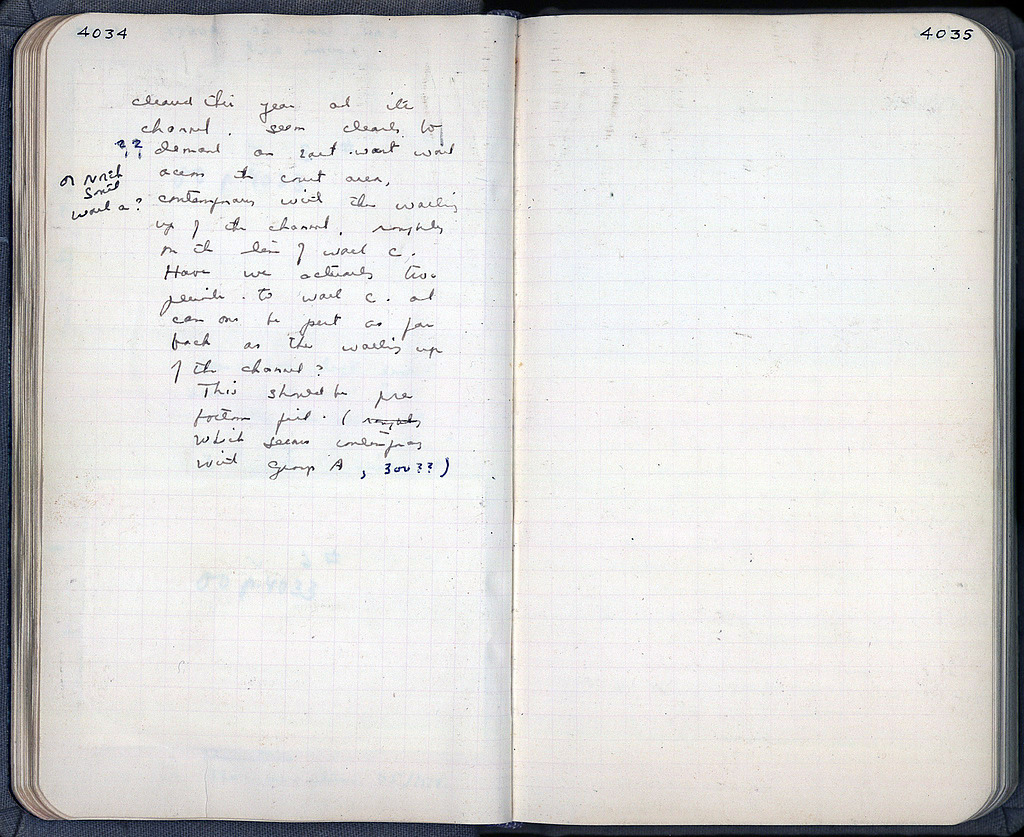 4034
4035
cleared this year and its
channel. seem clearly to
?? demand an East West wall
or North
South
wall a?
across the court area,
contemporary with the walling
up of the channel, roughly
on the line of wall C.
Have we actually two
periods to wall C. and
can one be put as far
back as the walling up
of the channel?
This should be pre
bottom pit. (roughly
which seems contemporary
with Group A, 300??)